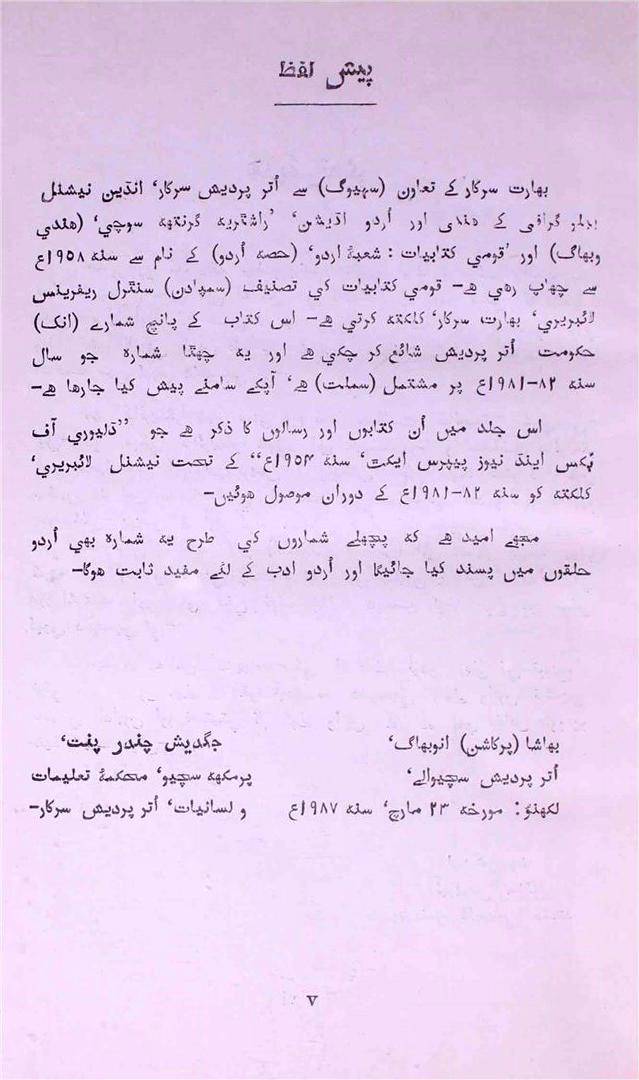 پیش لفظ
بھارت سرکار کے تعاون (سہیوگ) سے اُتر پردیش سرکار، انڈین نیشنل
ببلیو گرافی کے ھندی اور اُردو اڈیشن، ’راشٹریہ گرنتھ سوچی‘ (ھندی
وبھاگ) اور ’قومی کتابیات : شعبۂ اردو‘ (حصہ اُردو) کے نام سے سنہ ۱۹۵۸ع
سے چھاپ رھی ھے۔ قومی کتابیات کی تصنیف (سمپادن) سنٹرل ریفرینس
لائبریری، بھارت سرکار، کلکتہ کرتی ھے۔ اس کتاب کے پانچ شمارے (انک)
حکومت اُتر پردیش شائع کر چکی ھے اور یہ چھٹا شمارہ جو سال
سنہ ۸۲–۱۹۸۱ع پر مشتمل (سملت) ھے، آپکے سامنے پیش کیا جارھا ھے۔
اس جلد میں اُن کتابوں اور رسالوں کا ذکر ھے جو ’’ڈلیوری آف
بُکس اینڈ نیوز پیپرس ایکٹ، سنہ ۱۹۵۴ع‘‘ کے تحت نیشنل لائبریری،
کلکتہ کو سنہ ۸۲–۱۹۸۱ع کے دوران موصول ھوئیں۔
مجھے امید ھے کہ پچھلے شماروں کی طرح یہ شمارہ بھی اُردو
حلقوں میں پسند کیا جائیگا اور اُردو ادب کے لئے مفید ثابت ھوگا۔
بھاشا (پرکاشن) انوبھاگ، جگدیش چندر پنت،
اُتر پردیش سچیوالے، پرمکھ سچیو، محکمۂ تعلیمات
لکھنؤ: مورخہ ۲۳ مارچ، سنہ ۱۹۸۷ع و لسانیات، اُتر پردیش سرکار۔
۷